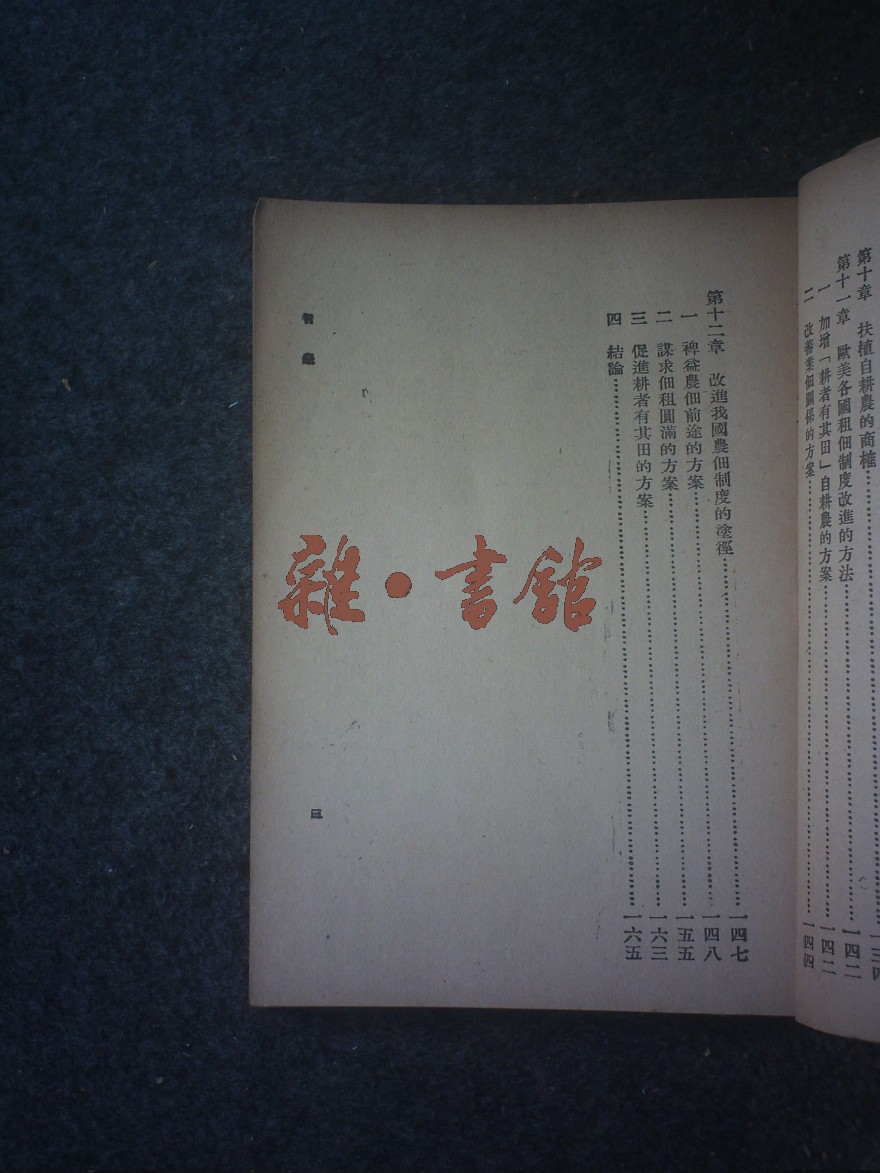 第十章 扶植自耕農的商榷……一三四
第十一章 歐美各國租佃制度改進的方法……一四二
一 加增「耕者有其田」自耕農的方案……一四二
二 改善業佃關係的方案……一四四
第十二章 改進我國農佃制度的塗徑……一四七
一 裨益農佃前途的方案……一四八
二 謀求佃租圓滿的方案……一五五
三 促進耕者有其田的方案……一六三
四 結論……一六五
目錄
三
雜·書館